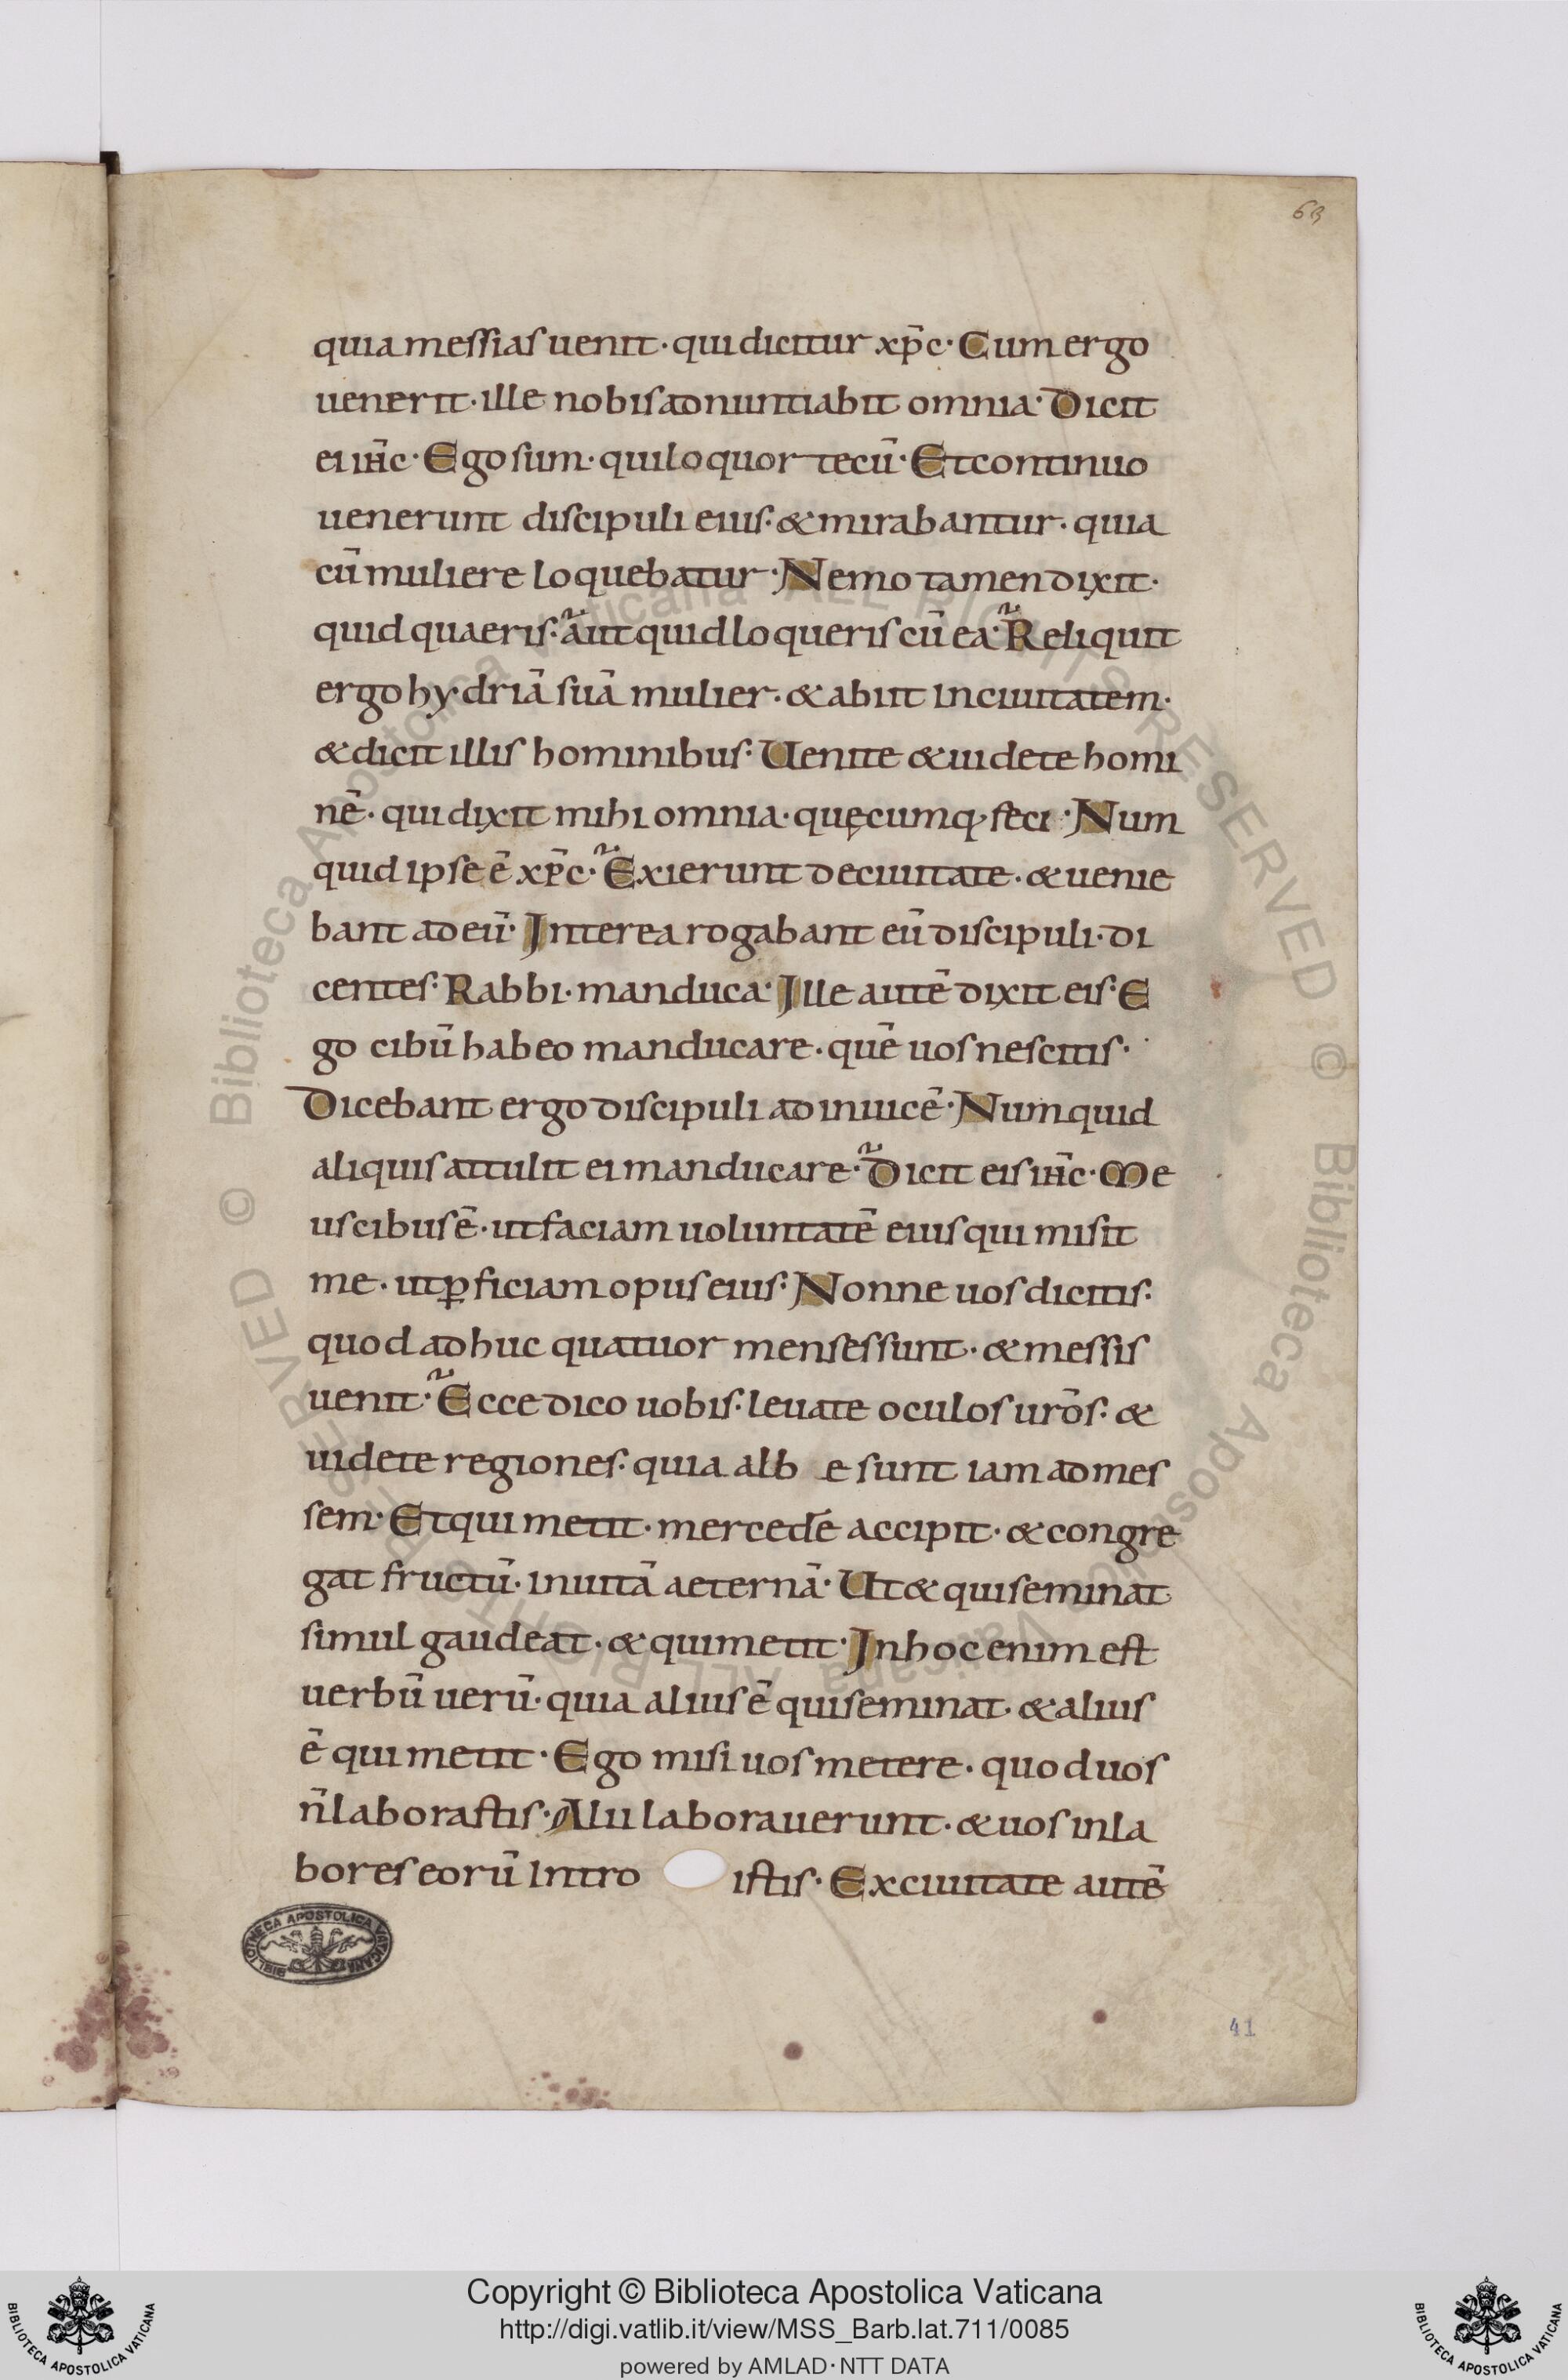 63
quia messias uenit· qui dicitur xp̄c· Cum ergo
uenerit· ille nobis adnuntiabit omnia· Dicit
ei ih̄c· Ego sum· qui loquor tecū· Et continuo
uenerunt discipuli eius· & mirabantur· quia
cū muliere loquebatur· Nemo tamen dixit·
quid quaeris· aut quid loqueris cū ea· Reliquit
ergo hydriā suā mulier· & abiit in ciuitatem·
& dicit illis hominibus· Uenite & uidete homi
nē· qui dixit mihi omnia· quęcumq· feci· Num
quid ipse ē xp̄c· Exierunt de ciuitate· & uenie
bant ad eū· Interea rogabant eū discipuli· di
centes· Rabbi· manduca· Ille autē dixit eis· E
go cibū habeo manducare· quē uos nescitis·
Dicebant ergo discipuli ad inuicē· Numquid
aliquis attulit ei manducare· Dicit eis ih̄c· Me
us cibus ē· ut faciam uoluntatē eius qui misit
me· ut ꝑficiam opus eius· Nonne uos dicitis·
quod adhuc quatuor menses sunt· & messis
uenit· Ecce dico uobis· leuate oculos ur̄os· &
uidete regiones· quia alb e sunt iam ad mes
sem· Et qui metit· mercedē accipit· & congre
gat fructū· in uitā aeternā· Ut & qui seminat
simul gaudeat· & qui metit· In hoc enim est
uerbū uerū· quia alius ē qui seminat· & alius
ē qui metit· Ego misi uos metere· quod uos
n̄ laborastis· Alii laborauerunt· & uos in la
bores eorū intro istis· Ex ciuitate autē
BIBLIOTHECA APOSTOLICA VATICANA
41
© Biblioteca Apostolica Vaticana ALL RIGHTS RESERVED
© Biblioteca Apostolica Vaticana ALL RIGHTS RESERVED
Copyright © Biblioteca Apostolica Vaticana
http://digi.vatlib.it/view/MSS_Barb.lat.711/0085
powered by AMLAD·NTT DATA
BIBLIOTECA APOSTOLICA VATICANA
BIBLIOTECA APOSTOLICA VATICANA